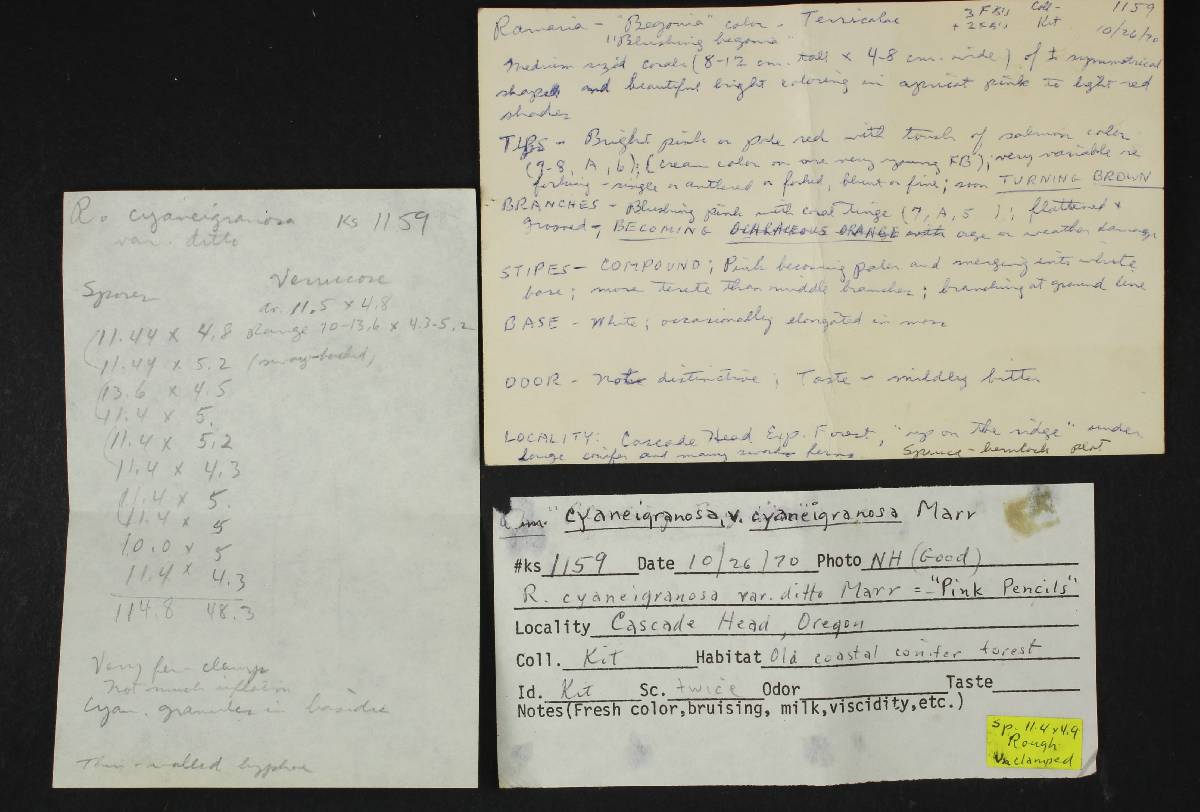 Ramaria - "Begonia" color - Terricolae 3 FB's Coll- 1159
"Blushing begonia" + 2 FB's Kit 10/26/70
Medium sized corals (8-12 cm. tall x 4-8 cm. wide) of ± symmetrical
shape and beautiful bright coloring in apricot pink to light red
shades
TIPS - Bright pink or pale red with touch of salmon color
(9-8, A, 6); (cream color on one very young FB); very variable re
forking - single or antlered or forked, blunt or fine; soon TURNING BROWN
BRANCHES - Blushing pink with coral tinge (7, A, 5 ); flattened +
grooved -, BECOMING ORANGE with age or weather damage
STIPES - COMPOUND; Pink becoming paler and merging into white
base; more terete than middle branches; branching at ground line
BASE - White; occasionally elongated in moss
ODOR - Not distinctive; Taste - mildly bitter
LOCALITY: Cascade Head Exp. Forest, "up on the ridge" under
large conifer and many sword ferns Spruce-hemlock plot
R. cyaneigranosa KS 1159
var. ditto
Verrucose
Spores av. 11.5 x 4.8
11.44 x 4.8 Range 10-13.6 x 4.3-5.2
11.44 x 5.2 (sway-backed)
13.6 x 4.5
11.4 x 5.
11.4 x 5.2
11.4 x 4.3
11.4 x 5.
11.4 x 5
10.0 x 5
11.4 x 4.3
114.8 48.3
Very few clamps
Not much inflation
Cyan. granules in basidia
Thin-walled hyphae
cyaneigranosa, v. cyaneigranosa Marr
#ks 1159 Date 10/26/70 Photo NH (Good)
R. cyaneigranosa var. ditto Marr = "Pink Pencils"
Locality Cascade Head, Oregon
Coll. Kit Habitat Old coastal conifer forest
Id. Kit Sc. twice Odor Taste
Notes(Fresh color,bruising, milk,viscidity,etc.)
Sp. 11.4 x 4.9
Rough
Unclamped